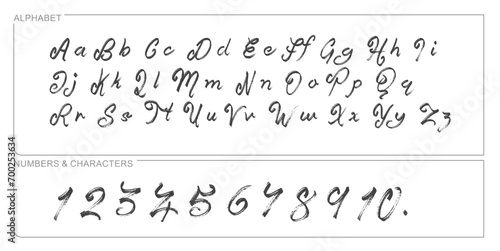 ALPHABET
A a B b C c D d E e F f G g H h I i
J j K k L l M m N n O o P p Q q
R r S s T t U u V v W w X x Y y Z z
NUMBERS & CHARACTERS
1 2 3 4 5 6 7 8 9 10.
Adobe Stock | #700253634